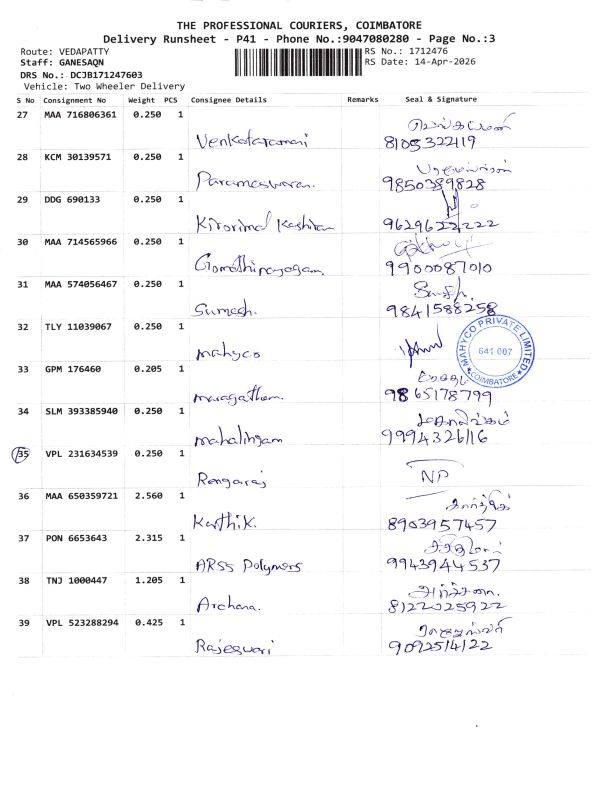 THE PROFESSIONAL COURIERS, COIMBATORE
Delivery Runsheet - P41 - Phone No.:9047080280 - Page No.:3
Route: VEDAPATTY
RS No.: 1712476
Staff: GANESAQN
RS Date: 14-Apr-2026
DRS No.: DCJB171247603
Vehicle: Two Wheeler Delivery
S No Consignment No Weight PCS Consignee Details Remarks Seal & Signature
27 MAA 716806361 0.250 1
Venkataramani 8105322119
28 KCM 30139571 0.250 1
Parameswaran. 9850389828
29 DDG 690133 0.250 1
Kirorimal Kashiram 9629622222
30 MAA 714565966 0.250 1
Gomathinayagam 9900087010
31 MAA 574056467 0.250 1
Sumesh. 9841588258
32 TLY 11039067 0.250 1
Mahyco
MAHYCO PRIVATE LIMITED
641 007
COIMBATORE
33 GPM 176460 0.205 1
Maragatham. 9865178799
34 SLM 393385940 0.250 1
மகாலிங்கம்
Mahalingam 9994326116
35 VPL 231634539 0.250 1
Rengaraj NP
36 MAA 650359721 2.560 1
கார்த்திக்
Karthik. 8903957457
37 PON 6653643 2.315 1
ARSS Polymers 9943944537
38 TNJ 1000447 1.205 1
அர்ச்சனா.
Archana. 8122025922
39 VPL 523288294 0.425 1
ராஜேஸ்வரி
Rajeswari 9092514122